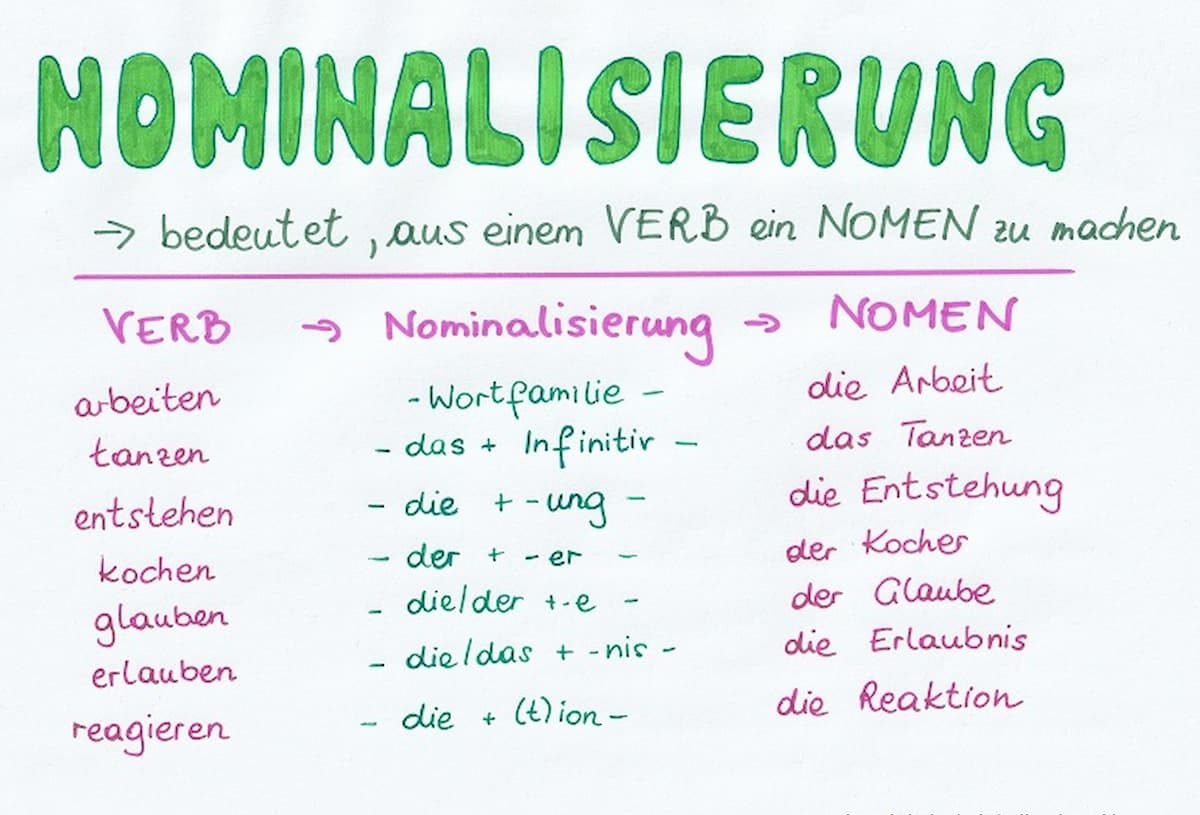 NOMINALISIERUNG
→ bedeutet, aus einem VERB ein NOMEN zu machen
VERB → Nominalisierung → NOMEN
arbeiten - Wortfamilie - die Arbeit
tanzen - das + Infinitiv - das Tanzen
entstehen - die + -ung - die Entstehung
kochen - der + -er - der Kocher
glauben - die/der + -e - der Glaube
erlauben - die/das + -nis - die Erlaubnis
reagieren - die + (t)ion - die Reaktion